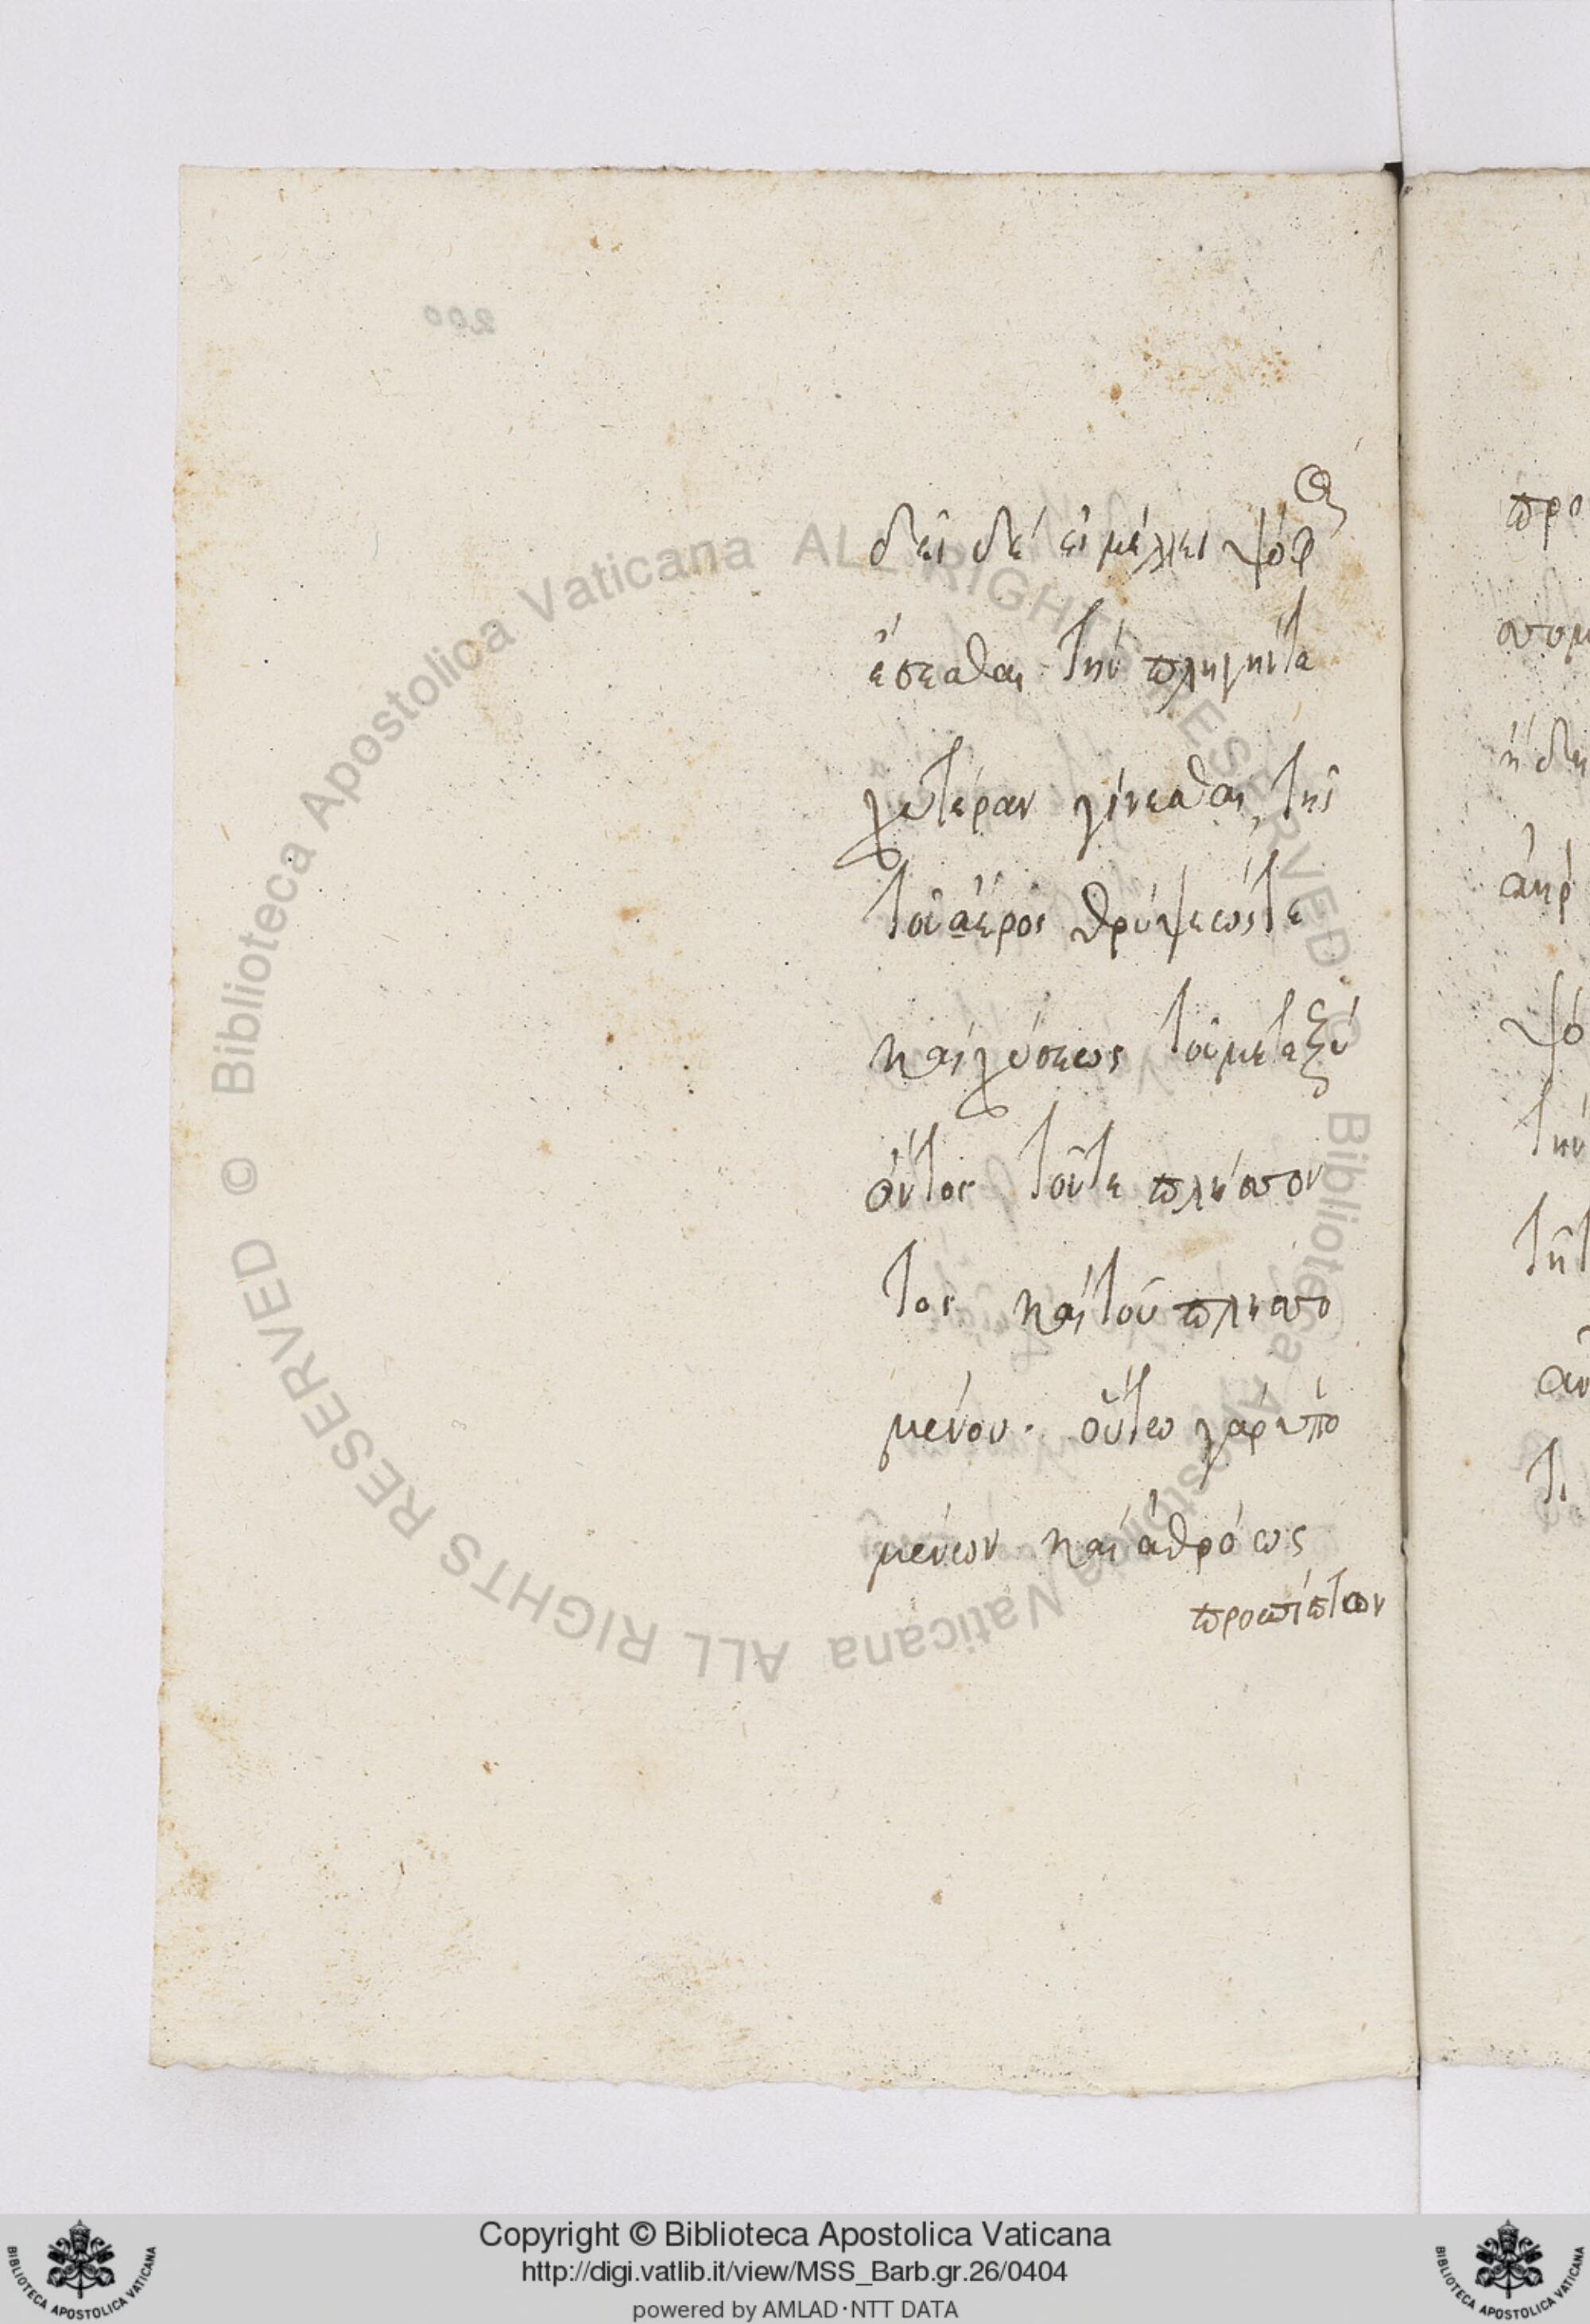 δεῖ δέ εἰ μέλλει ψόφος
ἔσεσθαι τὴν πληγὴν τα
χυτέραν γίνεσθαι, τῆς
τοῦ ἀέρος θρύψεώς τε
καὶ χύσεως τοῦ μεταξὺ
ὄντος τοῦ τε πλήσσον
τος καὶ τοῦ πλησσο
μένου. οὕτω γὰρ ὑπο
μένων καὶ ἀθρόως
προσπίπτων
προ
ἀὴρ
ψό
την
τι
200
© Biblioteca Apostolica Vaticana ALL RIGHTS RESERVED © Biblioteca Apostolica Vaticana ALL RIGHTS RESERVED
Copyright © Biblioteca Apostolica Vaticana
http://digi.vatlib.it/view/MSS_Barb.gr.26/0404
powered by AMLAD·NTT DATA
BIBLIOTECA APOSTOLICA VATICANA
BIBLIOTECA APOSTOLICA VATICANA